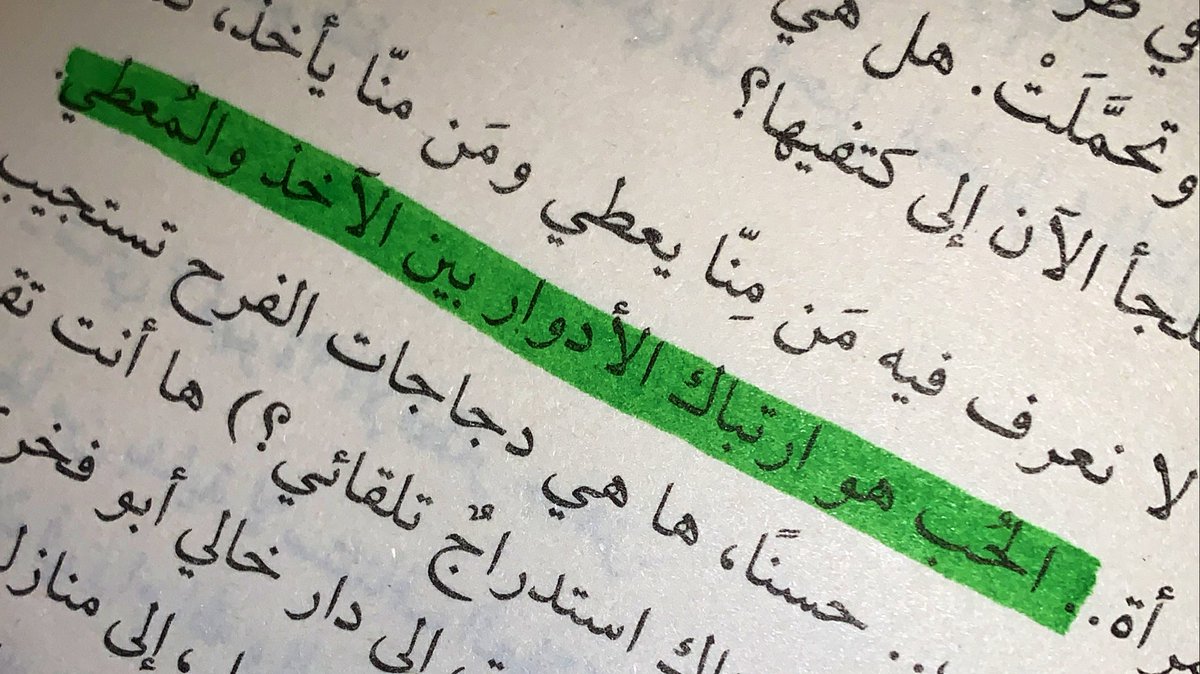 في
وتحمَّلَتْ. هل هي
الآن إلى كتفيها؟
لا نعرف فيه مَن مِنّا يعطي ومَن منّا يأخذ،
.. الحُب هو ارتباك الأدوار بين الآخذ والمُعطي.
حسنًا، ها هي دجاجات الفرح تستجيب
استدراجٌ تلقائي؟) ها أنت
إلى دار خالي أبو
، إلى